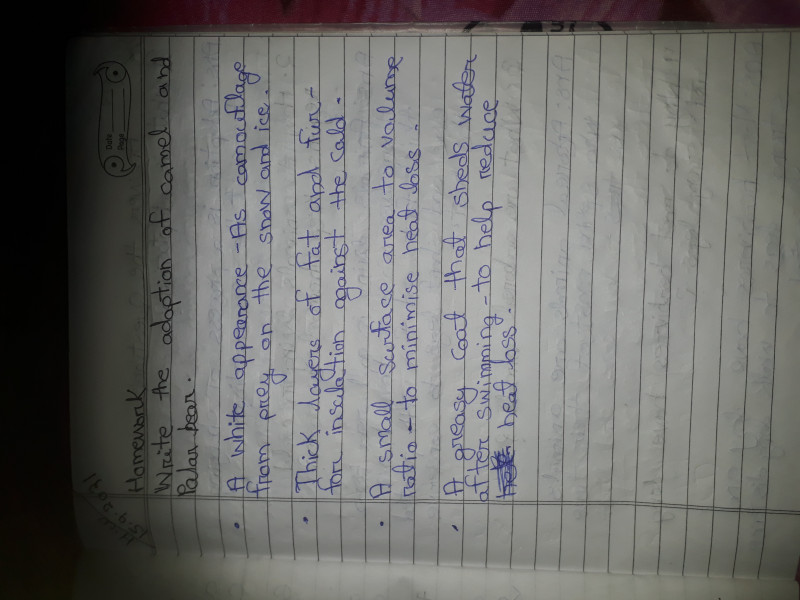 Date
Page
15.9.2021
Homework
Write the adaption of camel and
Polar bear.
• A white appearance - As camouflage
from prey on the snow and ice.
• Thick layers of fat and fur -
for insulation against the cold.
• A small surface area to volume
ratio - to minimise heat loss.
• A greasy coat that sheds water
after swimming - to help reduce
heat loss.